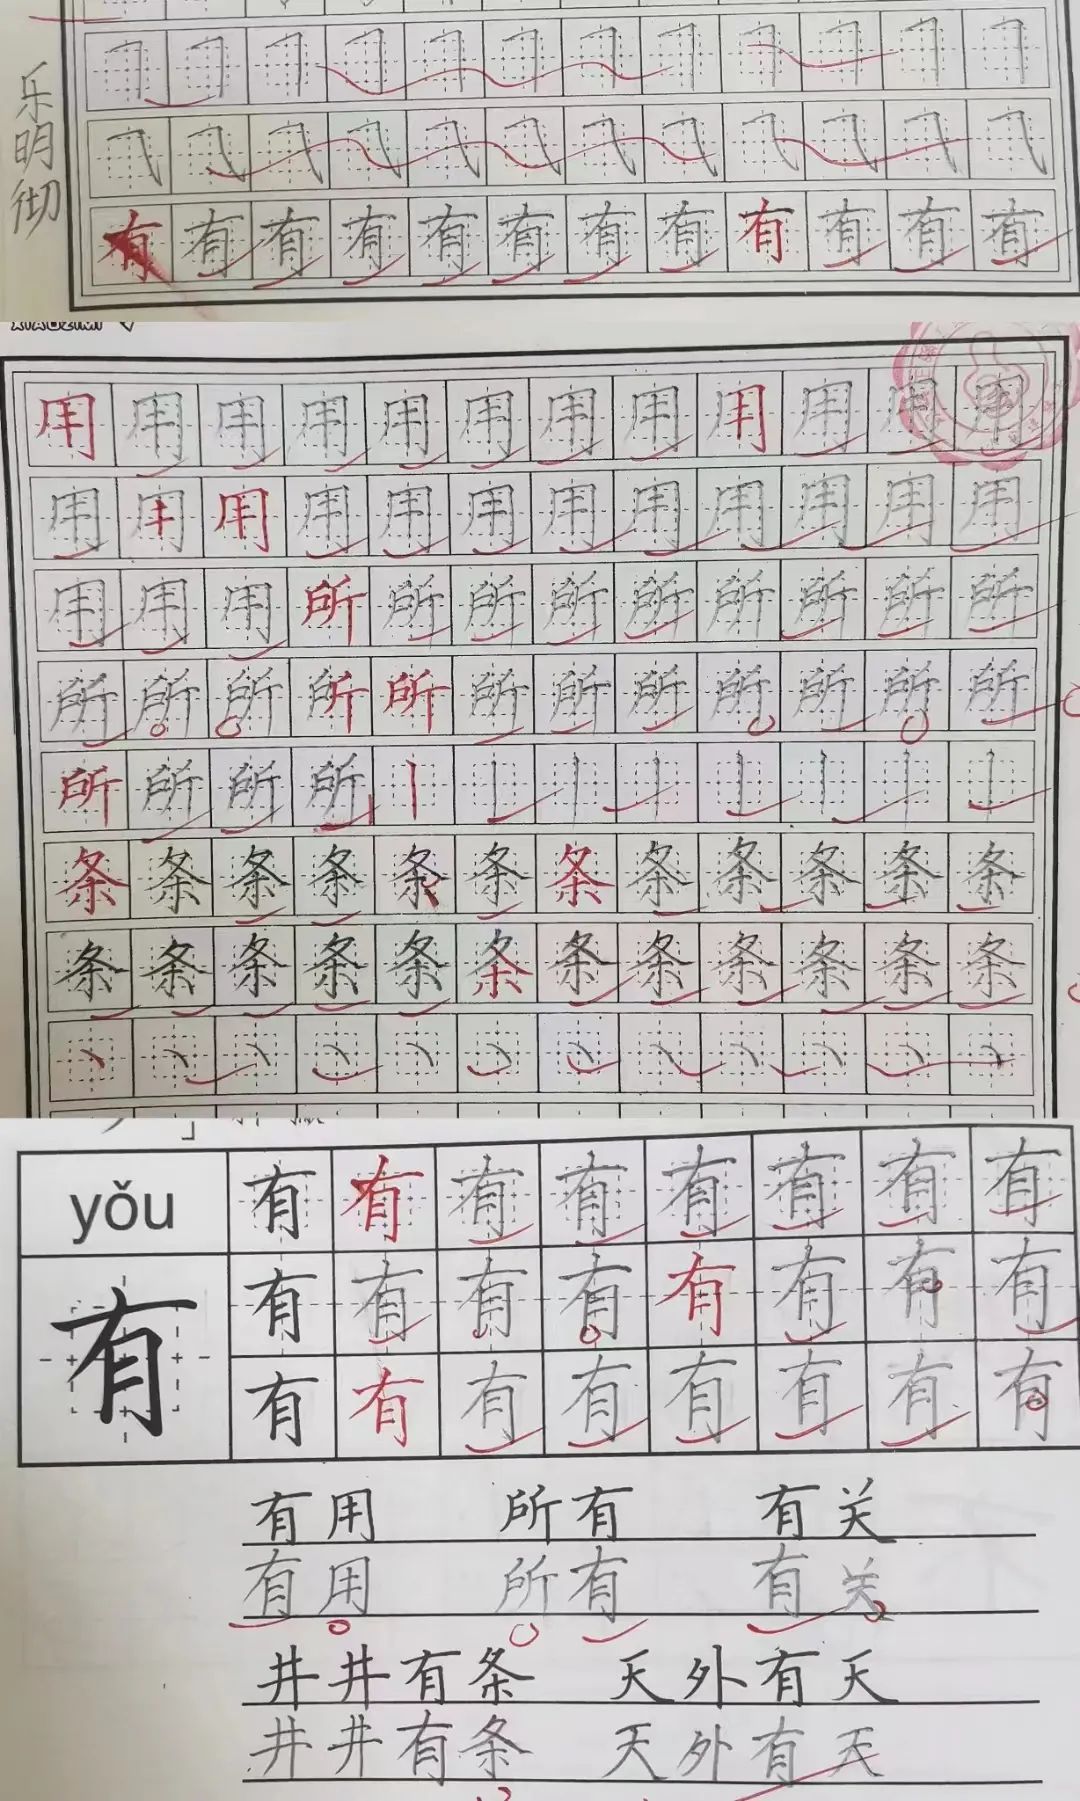 乐明彻
有有有有有有有有有有有有
用用用用用用用用用用用用
用用用用用用用用用用用用
用用用所所所所所所所所所
所所所所所所所所所所所所
所所所所丨丨丨丨丨丨丨丨
条条条条条条条条条条条条
条条条条条条条条条条条条
丶丶丶丶丶丶丶丶丶丶丶丶
yǒu 有有有有有有有有
有 有有有有有有有有
有有有有有有有有
有用 所有 有关
有用 所有 有关
井井有条 天外有天
井井有条 天外有天